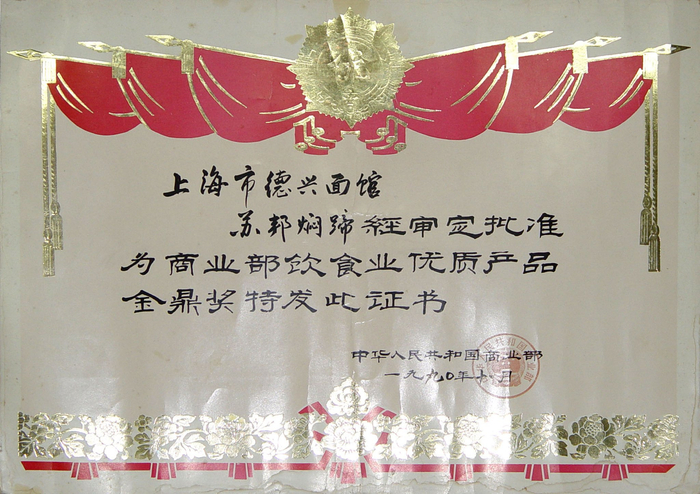 上海市德兴面馆
苏邦焖蹄经审定批准
为商业部饮食业优质产品
金鼎奖特发此证书
中华人民共和国商业部
一九九〇年 月